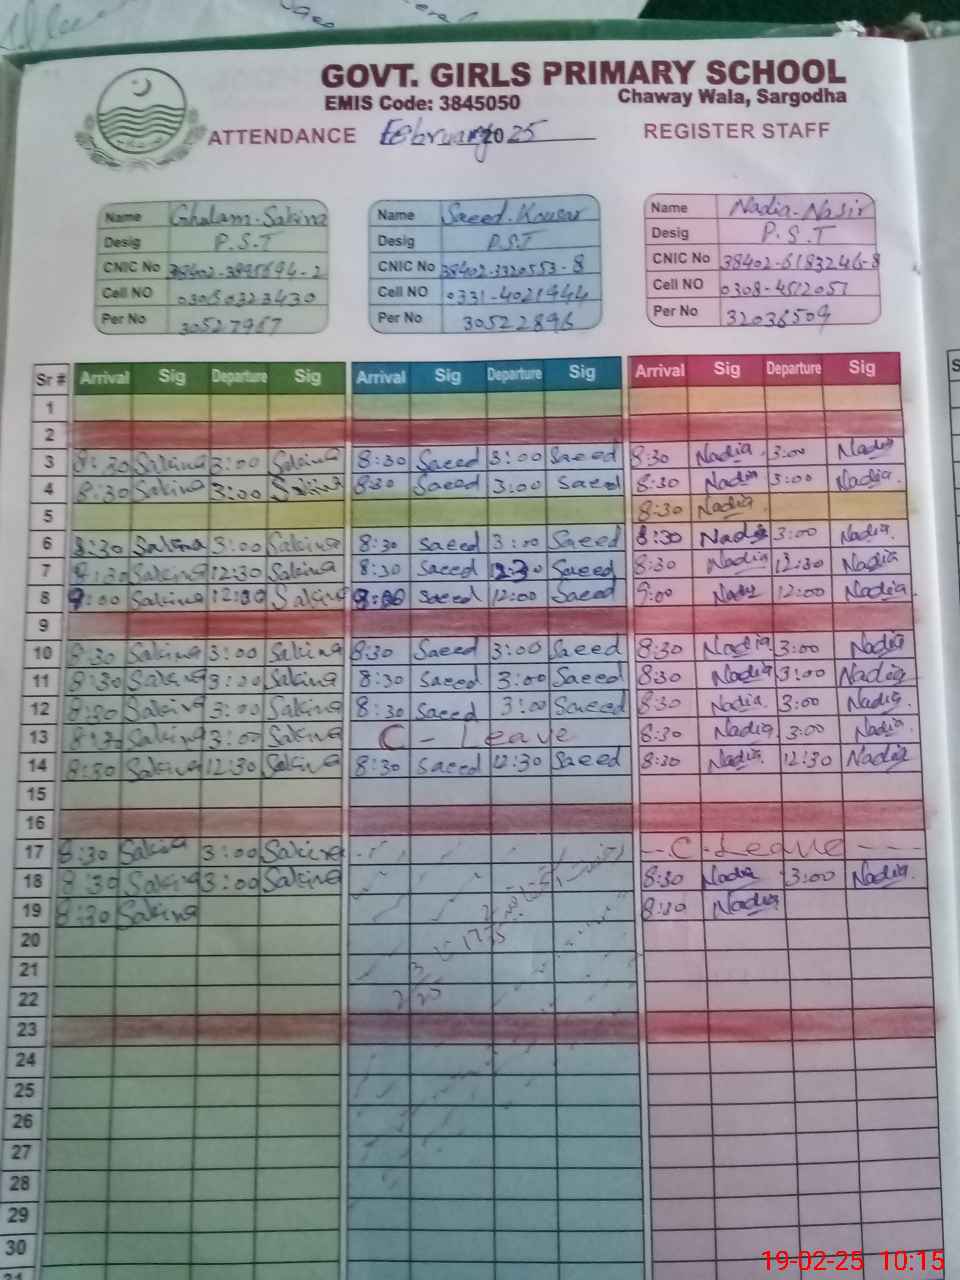 GOVT. GIRLS PRIMARY SCHOOL
EMIS Code: 3845050 Chaway Wala, Sargodha
ATTENDANCE February 2025 REGISTER STAFF
Name Ghulam-Sakina Name Saeed-Kousar Name Nadia-Nasir
Desig P.S.T Desig P.S.T Desig P.S.T
CNIC No CNIC No 38402-3320553-8 CNIC No 38402-6183246-8
Cell NO 03060323430 Cell NO 0331-4021944 Cell NO 0308-4512057
Per No 30527967 Per No 30522896 Per No 32036509
Sr # Arrival Sig Departure Sig Arrival Sig Departure Sig Arrival Sig Departure Sig
1
2
3 8:30 Sakina 3:00 Sakina 8:30 Saeed 3:00 Saeed 8:30 Nadia 3:00 Nadia
4 8:30 Sakina 3:00 Sakina 8:30 Saeed 3:00 Saeed 8:30 Nadia 3:00 Nadia
5 8:30 Nadia
6 8:30 Sakina 3:00 Sakina 8:30 Saeed 3:00 Saeed 8:30 Nadia 3:00 Nadia
7 8:30 Sakina 12:30 Sakina 8:30 Saeed 12:30 Saeed 8:30 Nadia 12:30 Nadia
8 9:00 Sakina Sakina 9:00 Saeed 12:00 Saeed 9:00 Nadia 12:00 Nadia
9
10 8:30 Sakina 3:00 Sakina 8:30 Saeed 3:00 Saeed 8:30 Nadia 3:00 Nadia
11 8:30 Sakina 3:00 Sakina 8:30 Saeed 3:00 Saeed 8:30 Nadia 3:00 Nadia
12 8:30 Sakina 3:00 Sakina 8:30 Saeed 3:00 Saeed 8:30 Nadia 3:00 Nadia
13 8:30 Sakina 3:00 Sakina C - Leave 8:30 Nadia 3:00 Nadia
14 8:30 Sakina 12:30 Sakina 8:30 Saeed 12:30 Saeed 8:30 Nadia 12:30 Nadia
15
16
17 8:30 Sakina 3:00 Sakina C - Leave
18 8:30 Sakina 3:00 Sakina 8:30 Nadia 3:00 Nadia
19 8:30 Sakina 8:30 Nadia
20
21
22
23
24
25
26
27
28
29
30
19-02-25 10:15